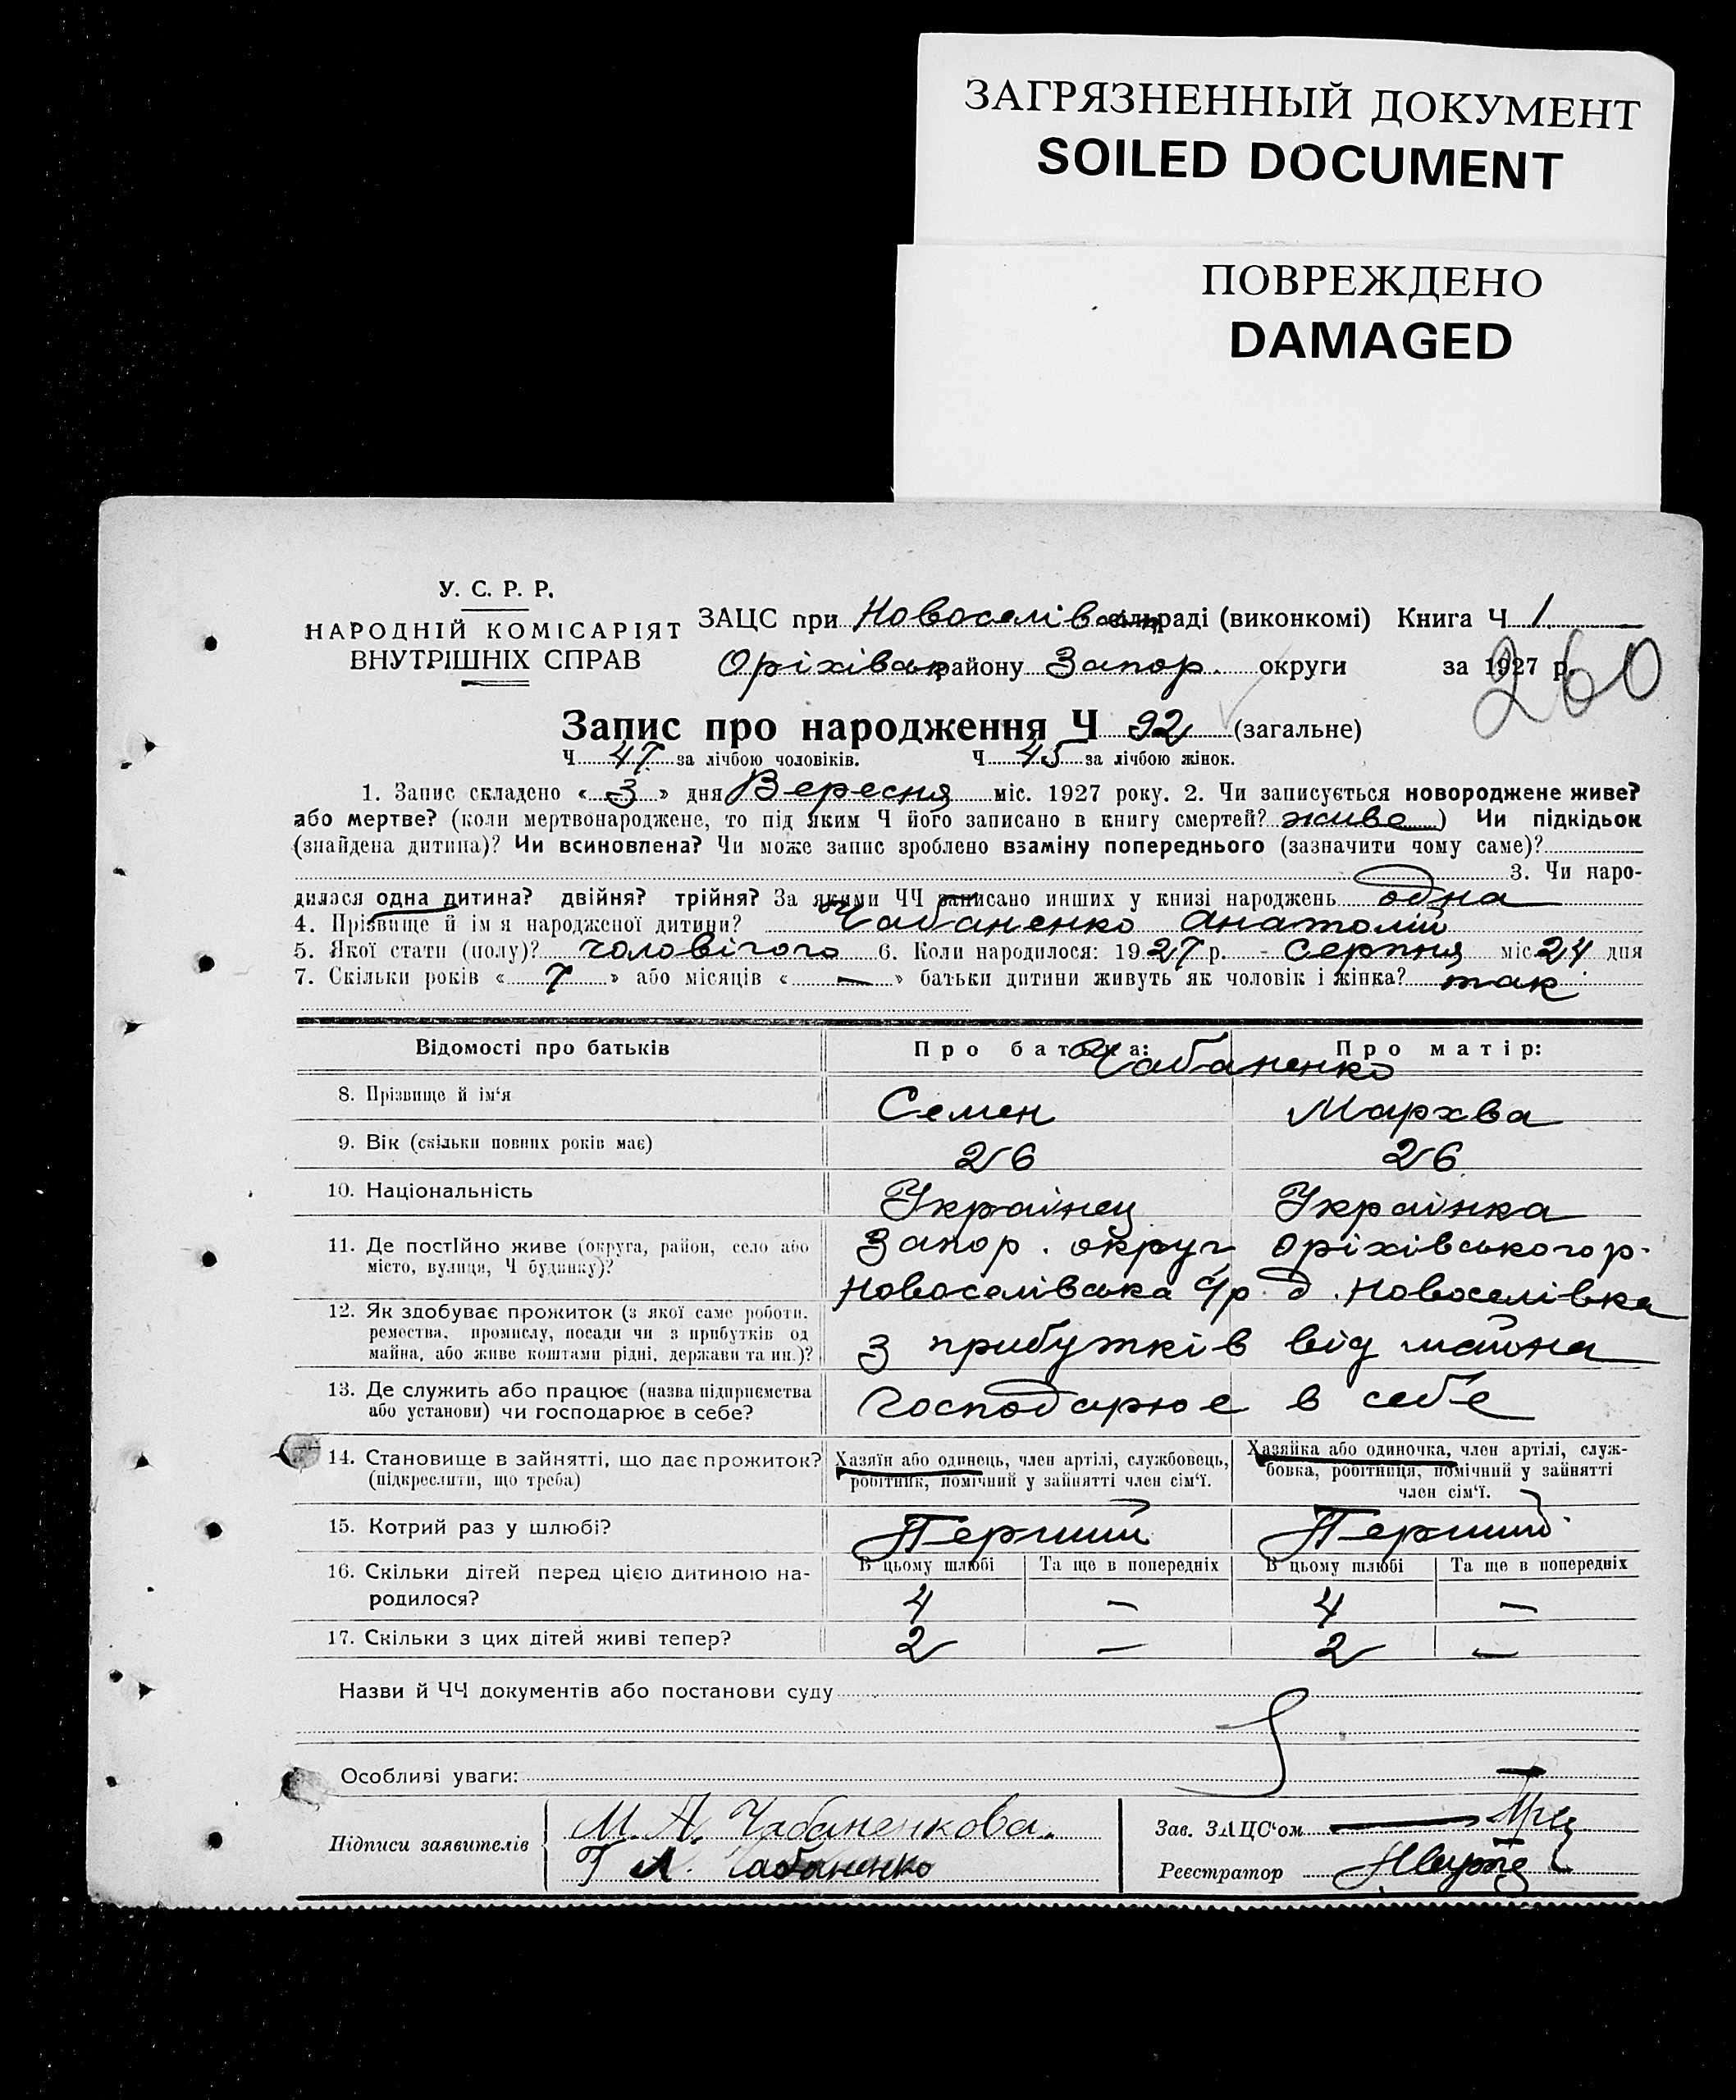 ЗАГРЯЗНЕННЫЙ ДОКУМЕНТ
SOILED DOCUMENT
ПОВРЕЖДЕНО
DAMAGED
У. С. Р. Р.
НАРОДНІЙ КОМІСАРІЯТ
ВНУТРІШНІХ СПРАВ
ЗАЦС при Новоселівськ сільраді (виконкомі) Книга Ч 1
Оріхівськ району Запор. округи за 1927 р.
260
Запис про народження Ч 92 (загальне)
Ч 47 за лічбою чоловіків. Ч 45 за лічбою жінок.
1. Запис складено « 3 » дня Вересня міс. 1927 року. 2. Чи записується новороджене живе?
або мертве? (коли мертвонароджене, то під яким Ч його записано в книгу смертей? живе) Чи підкідьок
(знайдена дитина)? Чи всиновлена? Чи може запис зроблено взаміну попереднього (зазначити чому саме)?
3. Чи наро-
дилася одна дитина? двійня? трійня? За якими ЧЧ записано инших у книзі народжень одна
4. Прізвище й ім я народженої дитини? Чабаненко Анатолій
5. Якої стати (полу)? чоловічого 6. Коли народилося: 1927 р. - Серпня міс 24 дня
7. Скільки років « 7 » або місяців « — » батьки дитини живуть як чоловік і жінка? так
Відомості про батьків Про батька: Про матір:
Чабаненко
8. Прізвище й ім‘я Семен Мархва
9. Вік (скільки повних років має) 26 26
10. Національність Українец Українка
11. Де постійно живе (округа, район, село або Запор. округ Оріхівського р.
місто, вулиця, Ч будинку)? Новоселівська с/р д. Новоселівка
12. Як здобуває прожиток (з якої саме роботи,
ремества, промислу, посади чи з прибутків од з прибутків від майна
майна, або живе коштами рідні, держави та ин.)?
13. Де служить або працює (назва підприємства Господарює в себе
або установи) чи господарює в себе?
14. Становище в зайнятті, що дає прожиток? Хазяїн або одинець, член артілі, службовець, Хазяйка або одиночка, член артілі, служ-
(підкреслити, що треба) робітник, помічний у зайнятті член сім‘ї. бовка, робітниця, помічний у зайнятті
член сім‘ї.
15. Котрий раз у шлюбі? Перший Перший
16. Скільки дітей перед цією дитиною на- В цьому шлюбі Та ще в попередніх В цьому шлюбі Та ще в попередніх
родилося? 4 — 4 —
17. Скільки з цих дітей живі тепер? 2 — 2 —
Назви й ЧЧ документів або постанови суду
Особливі уваги:
Підписи заявителів М. А. Чабаненкова. Зав. ЗАЦС‘ом
Г Л. Чабаненко Реєстратор